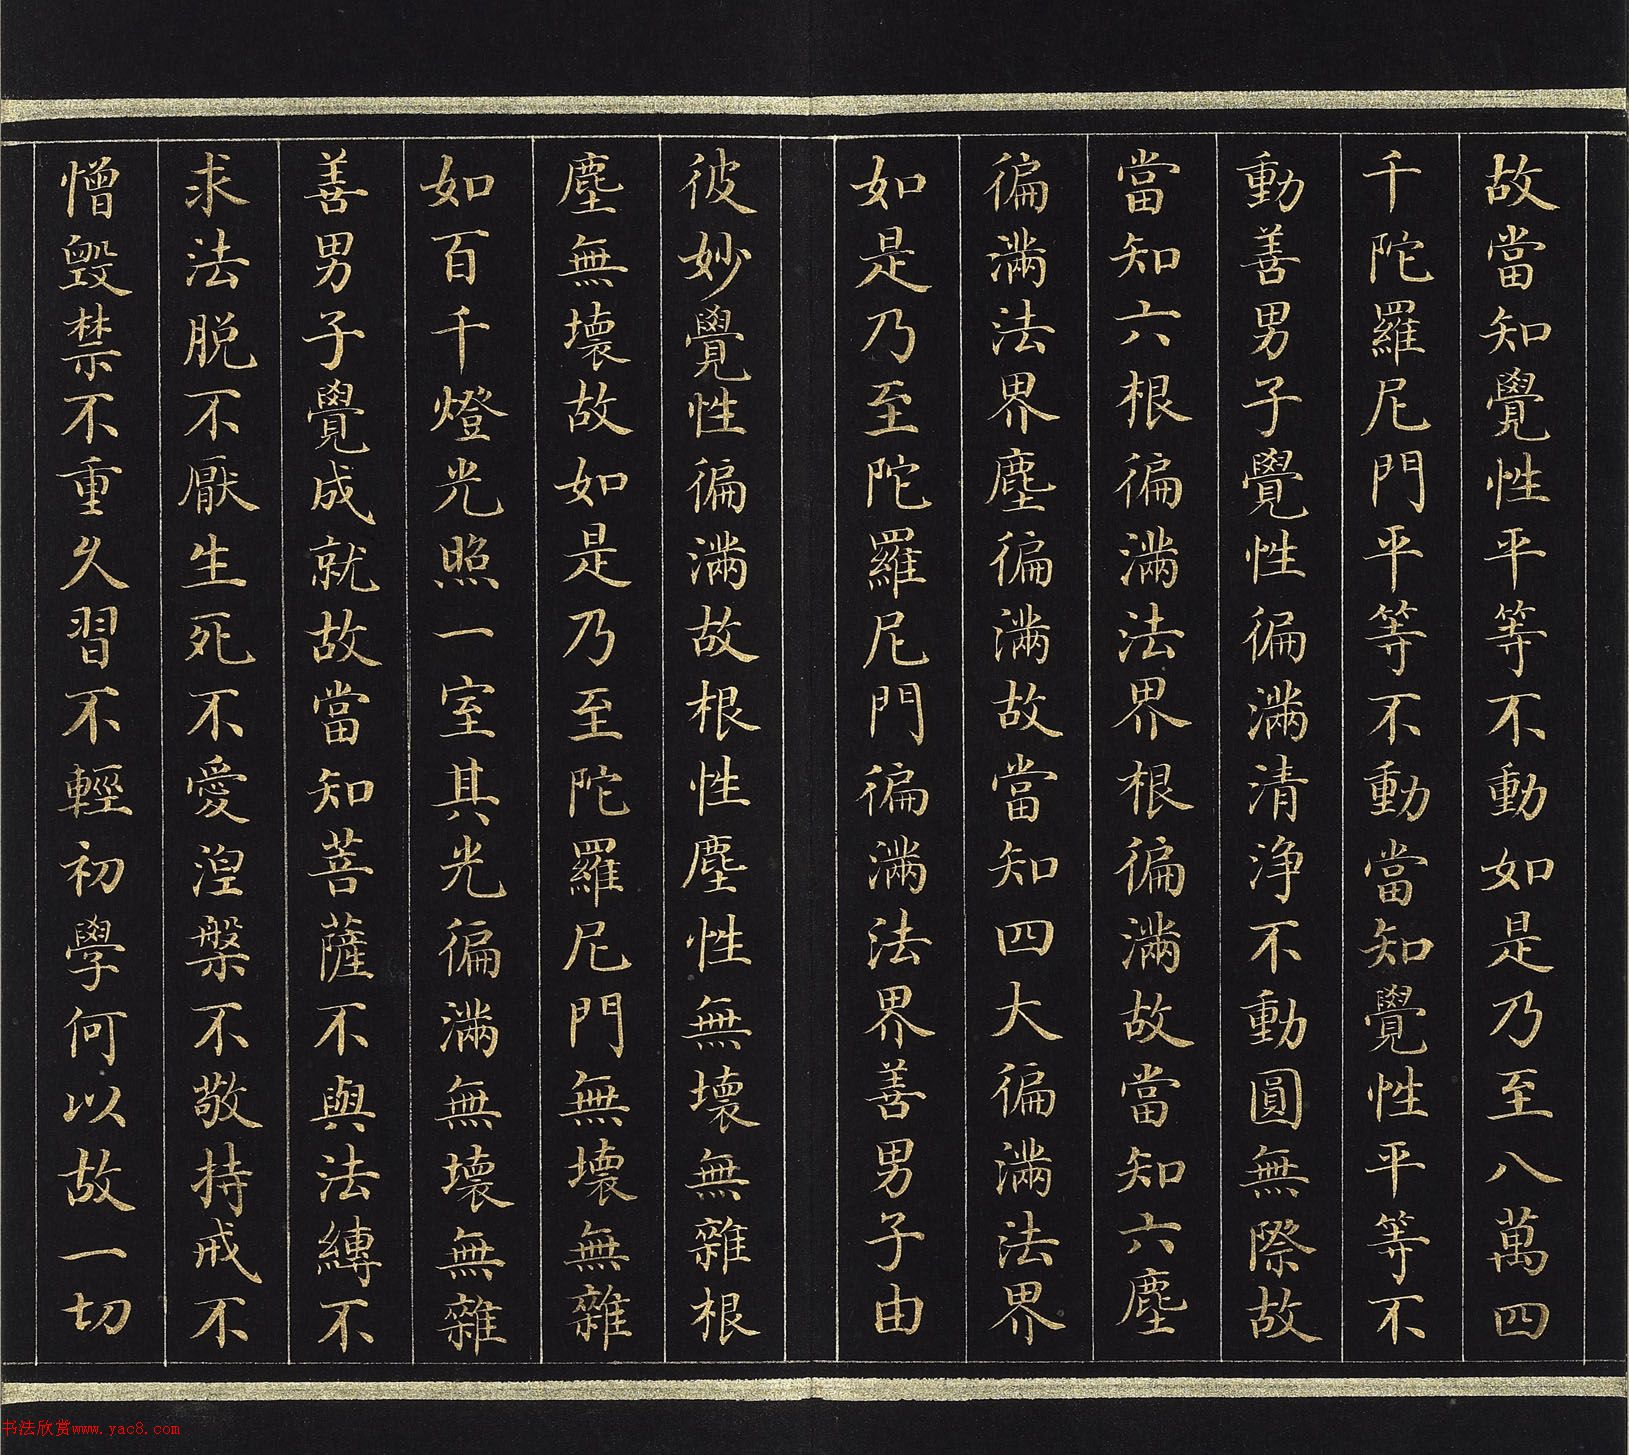 故當知覺性平等不動如是乃至八萬四
千陀羅尼門平等不動當知覺性平等不
動善男子覺性徧滿清淨不動圓無際故
當知六根徧滿法界根徧滿故當知六塵
徧滿法界塵徧滿故當知四大徧滿法界
如是乃至陀羅尼門徧滿法界善男子由
彼妙覺性徧滿故根性塵性無壞無雜根
塵無壞故如是乃至陀羅尼門無壞無雜
如百千燈光照一室其光徧滿無壞無雜
善男子覺成就故當知菩薩不與法縛不
求法脫不厭生死不愛涅槃不敬持戒不
憎毀禁不重久習不輕初學何以故一切
书法欣赏www.yac8.com